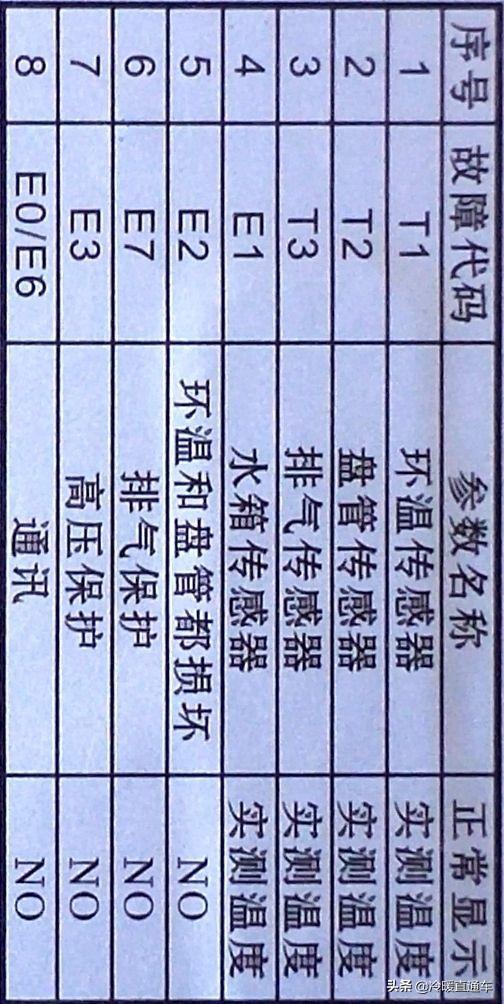 序号 故障代码 参数名称 正常显示
1 T1 环温传感器 实测温度
2 T2 盘管传感器 实测温度
3 T3 排气传感器 实测温度
4 E1 水箱传感器 实测温度
5 E2 环温和盘管都损坏 NO
6 E7 排气保护 NO
7 E3 高压保护 NO
8 E0/E6 通讯 NO
头条 @冷暖直通车